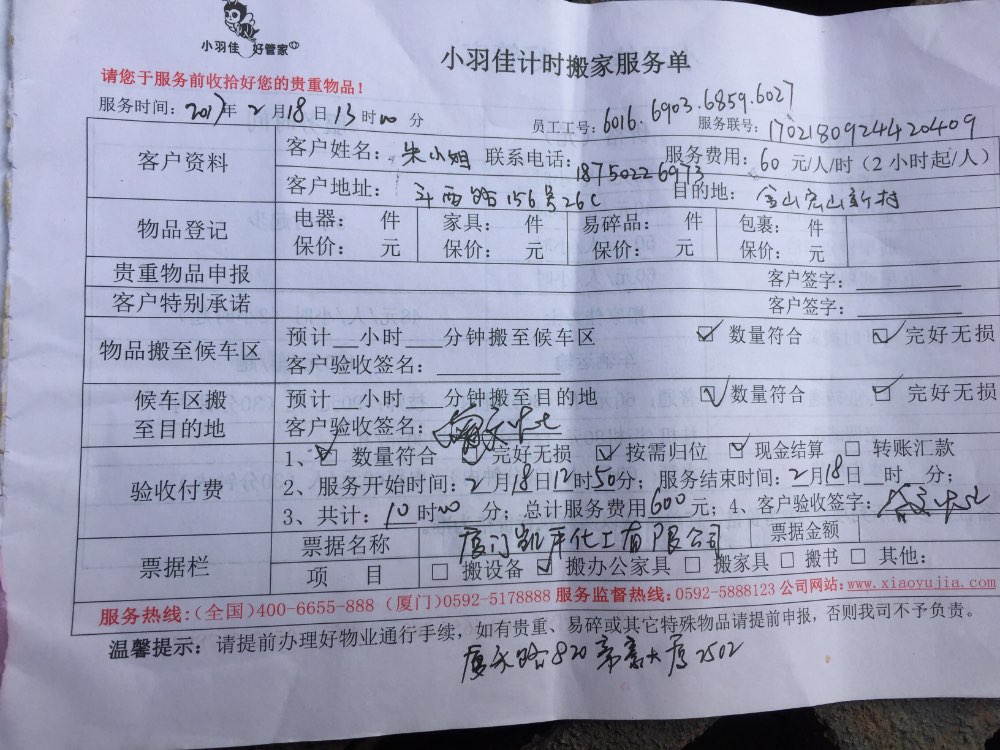 小羽佳 好管家
小羽佳计时搬家服务单
请您于服务前收拾好您的贵重物品！
服务时间：2017年2月18日13时00分 员工工号：6016.6903.6859.6027 服务联号：1702180924420409
客户资料 客户姓名：朱小姐 联系电话：18750226973 服务费用：60元/人/时（2小时起/人）
客户地址：斗西路156号26C 目的地：金山宏山新村
物品登记 电器： 件 家具： 件 易碎品： 件 包裹： 件
保价： 元 保价： 元 保价： 元 保价： 元
贵重物品申报 客户签字：
客户特别承诺 客户签字：
物品搬至候车区 预计__小时__分钟搬至候车区 ☑ 数量符合 ☑ 完好无损
客户验收签名：
候车区搬至目的地 预计__小时__分钟搬至目的地 ☑ 数量符合 ☑ 完好无损
客户验收签名：
验收付费 1、☑ 数量符合 ☑ 完好无损 ☑ 按需归位 ☑ 现金结算 □ 转账汇款
2、服务开始时间：2月18日12时50分；服务结束时间：2月18日__时__分；
3、共计：10时00分；总计服务费用600元；4、客户验收签字：
票据栏 票据名称 厦门凯平化工有限公司 票据金额
项 目 □ 搬设备 ☑ 搬办公家具 □ 搬家具 □ 搬书 □ 其他：
服务热线:(全国)400-6655-888 (厦门)0592-5178888 服务监督热线:0592-5888123 公司网站:www.xiaoyujia.com
温馨提示：请提前办理好物业通行手续，如有贵重、易碎或其它特殊物品请提前申报，否则我司不予负责。
厦禾路820帝豪大厦2502